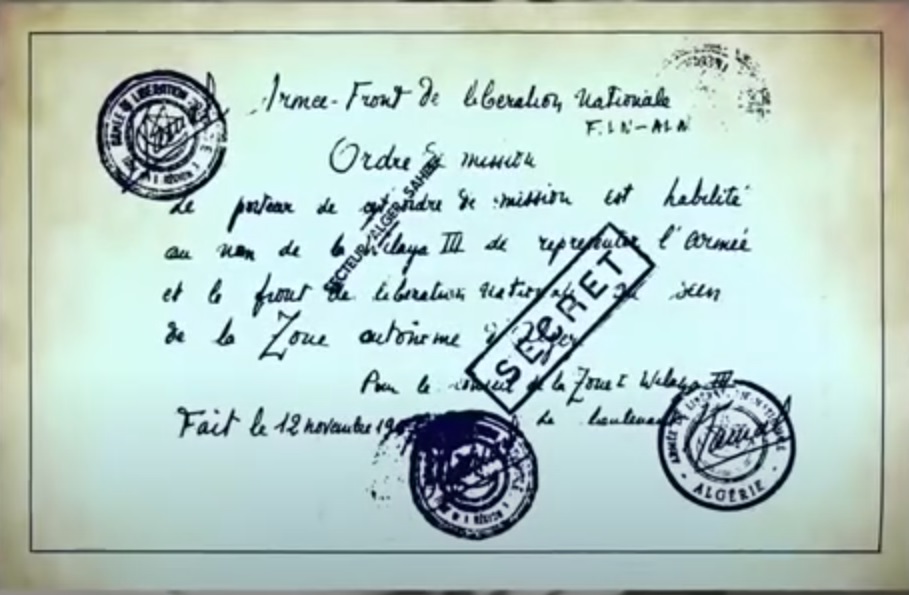 Armée-Front de libération nationale
F.L.N-ALN
Ordre de mission
Le porteur de cet ordre de mission est habilité
au nom de la Wilaya III de representer l'armée
et le front de liberation nationale au sein
de la Zone autonome d'Alger
Pour le conseil de la Zone I Wilaya III
Fait le 12 novembre Le lieutenant
SECTEUR ALGER SAHEL
SECRET
ARMÉE DE LIBÉRATION NATIONALE
ALGÉRIE